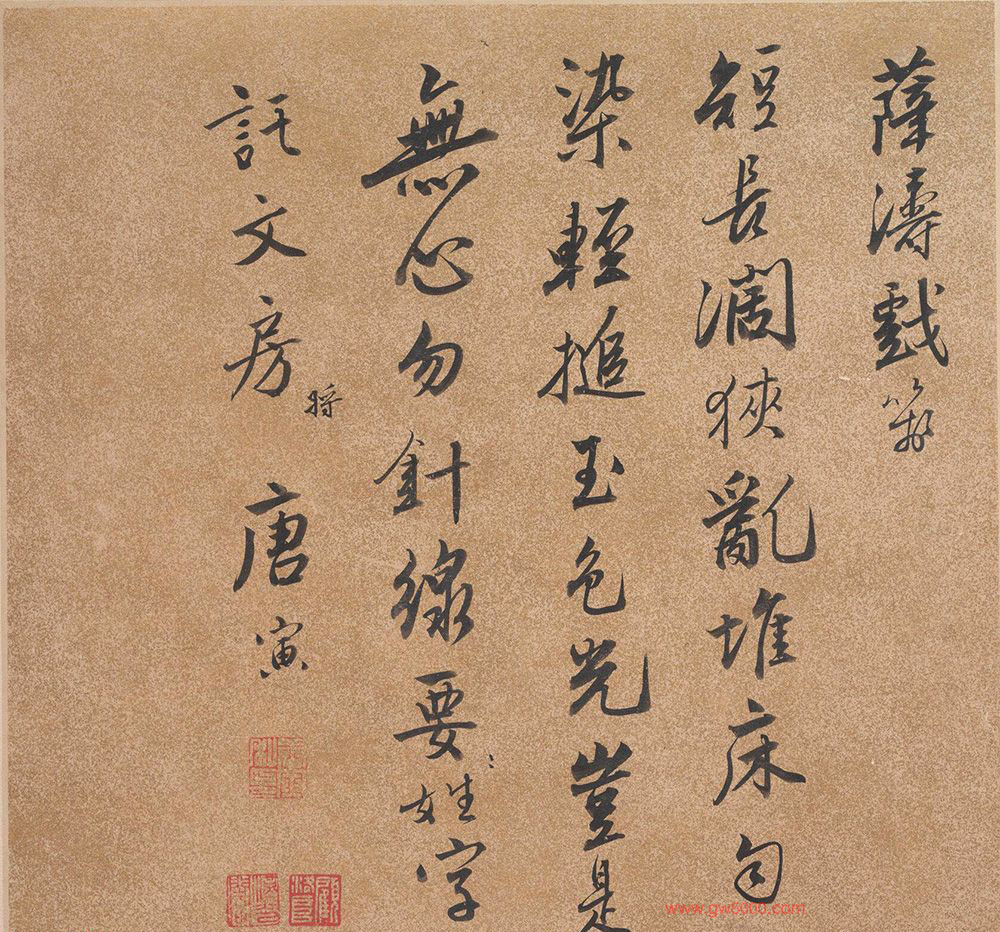 薛濤戲箋
短長濶狹亂堆床勻
染輕搥玉色光豈是
無心勿針線要姓字
託文房 將
唐寅
www.gw5000.com